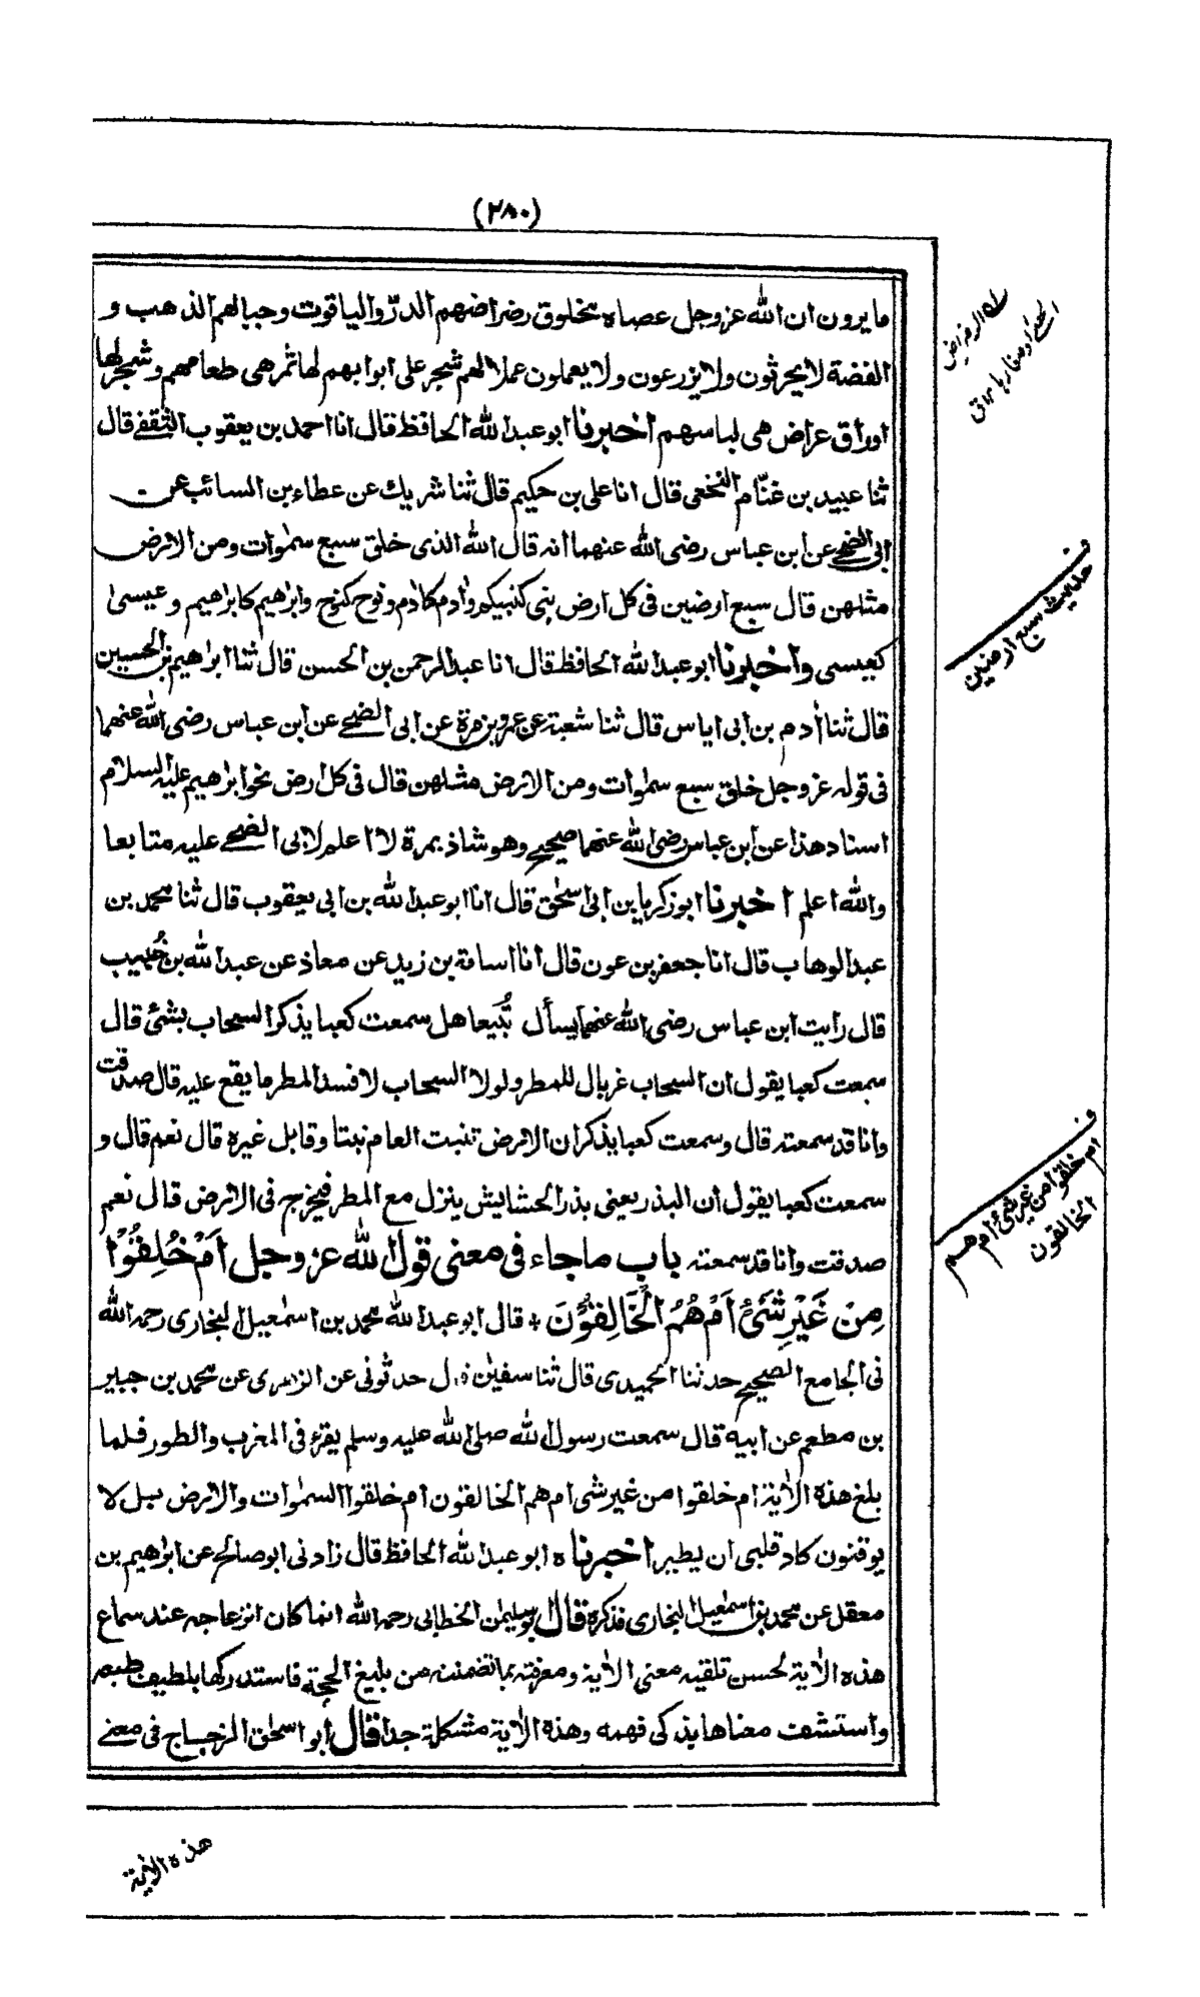 (٢٨٠)
ما يرون ان الله عز وجل عصاه مخلوق رضراضهم الدرّ والياقوت وجبالهم الذهب و
الفضة لا يحرثون ولا يزرعون ولا يعملون عملا لهم شجر على ابوابهم لها ثمر هى طعامهم وشجر لها
اوراق عراض هى لباسهم اخبرنا ابو عبد الله الحافظ قال انا احمد بن يعقوب الثقفے قال
ثنا عبيد بن غنّام النخعى قال انا على بن حكيم قال ثنا شريك عن عطاء بن السائب عن
ابى الضحے عن ابن عباس رضى الله عنهما انه قال الله الذى خلق سبع سمٰوات ومن الارض
مثلهن قال سبع ارضين فى كل ارض نبى كنبيكم وآدم كآدم ونوح كنوح وابراهيم كابراهيم وعيسى
كعيسى واخبرنا ابو عبد الله الحافظ قال انا عبد الرحمن بن الحسن قال ثنا ابراهيم بن الحسين
قال ثنا اٰدم بن ابى اياس قال ثنا شعبة عن عمرو بن مرة عن ابى الضحے عن ابن عباس رضى الله عنهما
فى قوله عز وجل خلق سبع سمٰوات ومن الارض مثلهن قال فى كل ارض نحو ابراهيم عليه السلام
اسناد هذا عن ابن عباس رضى الله عنهما صحيح وهو شاذ بمرة لا اعلم لابى الضحے عليه متابعا
والله اعلم اخبرنا ابو زكريا بن ابى اسحٰق قال انا ابو عبد الله بن ابى يعقوب قال ثنا محمد بن
عبد الوهاب قال انا جعفر بن عون قال انا اسامة بن زيد عن معاذ عن عبد الله بن خُبيب
قال رايت ابن عباس رضى الله عنهما يسأل تُبيعا هل سمعت كعبا يذكر السحاب بشئ قال
سمعت كعبا يقول ان السحاب غربال للمطر ولولا السحاب لافسد المطر ما يقع عليه قال صدقت
وانا قد سمعته قال وسمعت كعبا يذكر ان الارض تنبت العام نبتا وقابل غيره قال نعم قال و
سمعت كعبا يقول ان البذر يعنى بذر الحشايش ينزل مع المطر فيخرج فى الارض قال نعم
صدقت وانا قد سمعته باب ما جاء فى معنى قول الله عز وجل اَمْ خُلِقُوْا
مِنْ غَيْرِ شَئٍ اَمْ هُمُ الْخَالِقُوْنَ ٭ قال ابو عبد الله محمد بن اسمٰعيل البخارى رحمه الله
فى الجامع الصحيح حدثنا الحميدى قال ثنا سفيٰن قال حدثونى عن الزهرى عن محمد بن جبير
بن مطعم عن ابيه قال سمعت رسول الله صلى الله عليه وسلم يقرء فى المغرب والطور فلما
بلغ هذه الاٰية ام خلقوا من غير شى ام هم الخالقون ام خلقوا السمٰوات والارض بل لا
يوقنون كاد قلبى ان يطير اخبرناه ابو عبد الله الحافظ قال زادنى ابو صالح عن ابراهيم بن
معقل عن محمد بن اسمٰعيل البخارى فذكره قال ابو سليمٰن الخطابى رحمه الله انما كان انزعاجه عند سماع
هذه الاٰية لحسن تلقيه معنى الاٰية ومعرفته بما تضمنته من بليغ الحجة فاستدركها بلطيف طبعه
واستشف معناها بذكى فهمه وهذه الاٰية مشكلة جدا قال أبو اسحٰق الزجاج فى معنے
حديث سبع ارضين
ام خلقوا من غير شئ ام هم
الخالقون
هذه الاٰية